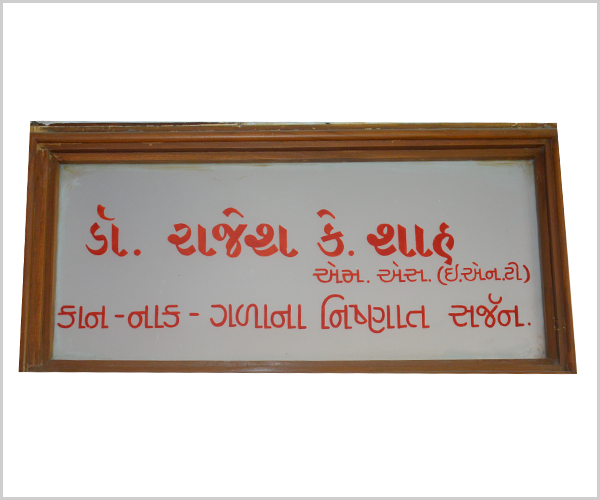 ડૉ. રાજેશ કે. શાહ
એમ. એસ. (ઇ.એન.ટી)
કાન - નાક - ગળાના નિષ્ણાત સર્જન.